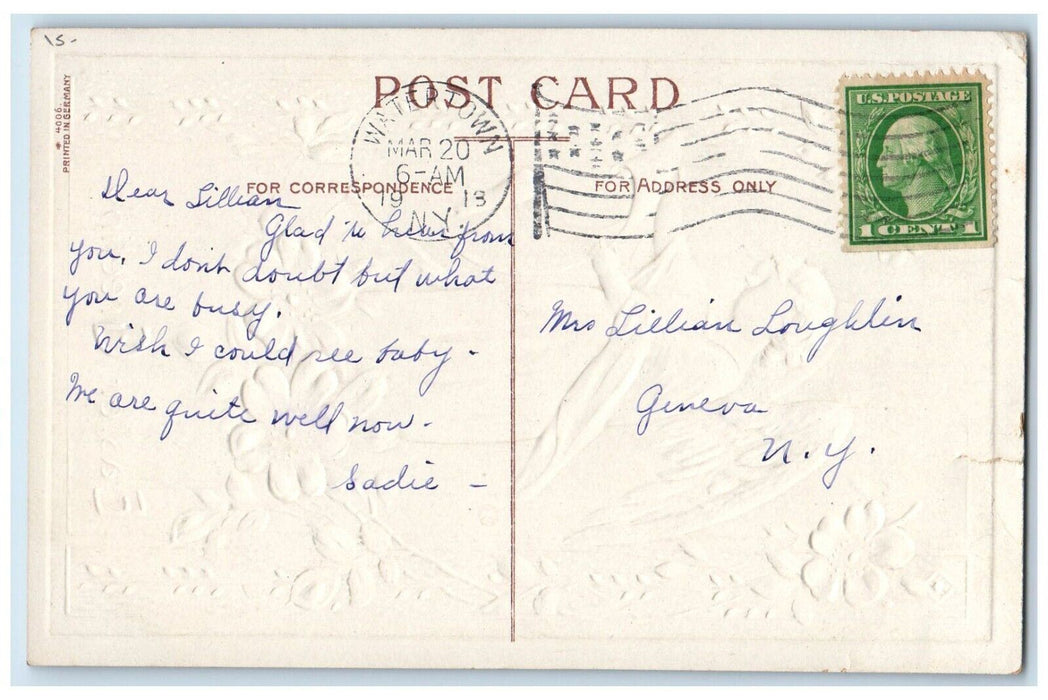 15-
* 4006.
PRINTED IN GERMANY
POST CARD
WATERTOWN
MAR 20
6-AM
1913
N.Y.
U.S. POSTAGE
1 CENT 1
FOR CORRESPONDENCE
FOR ADDRESS ONLY
Dear Lillian
Glad to hear from
you. I don't doubt but what
you are busy.
Wish I could see baby -
We are quite well now.
Sadie -
Mrs Lillian Loughlin
Geneva
N.Y.